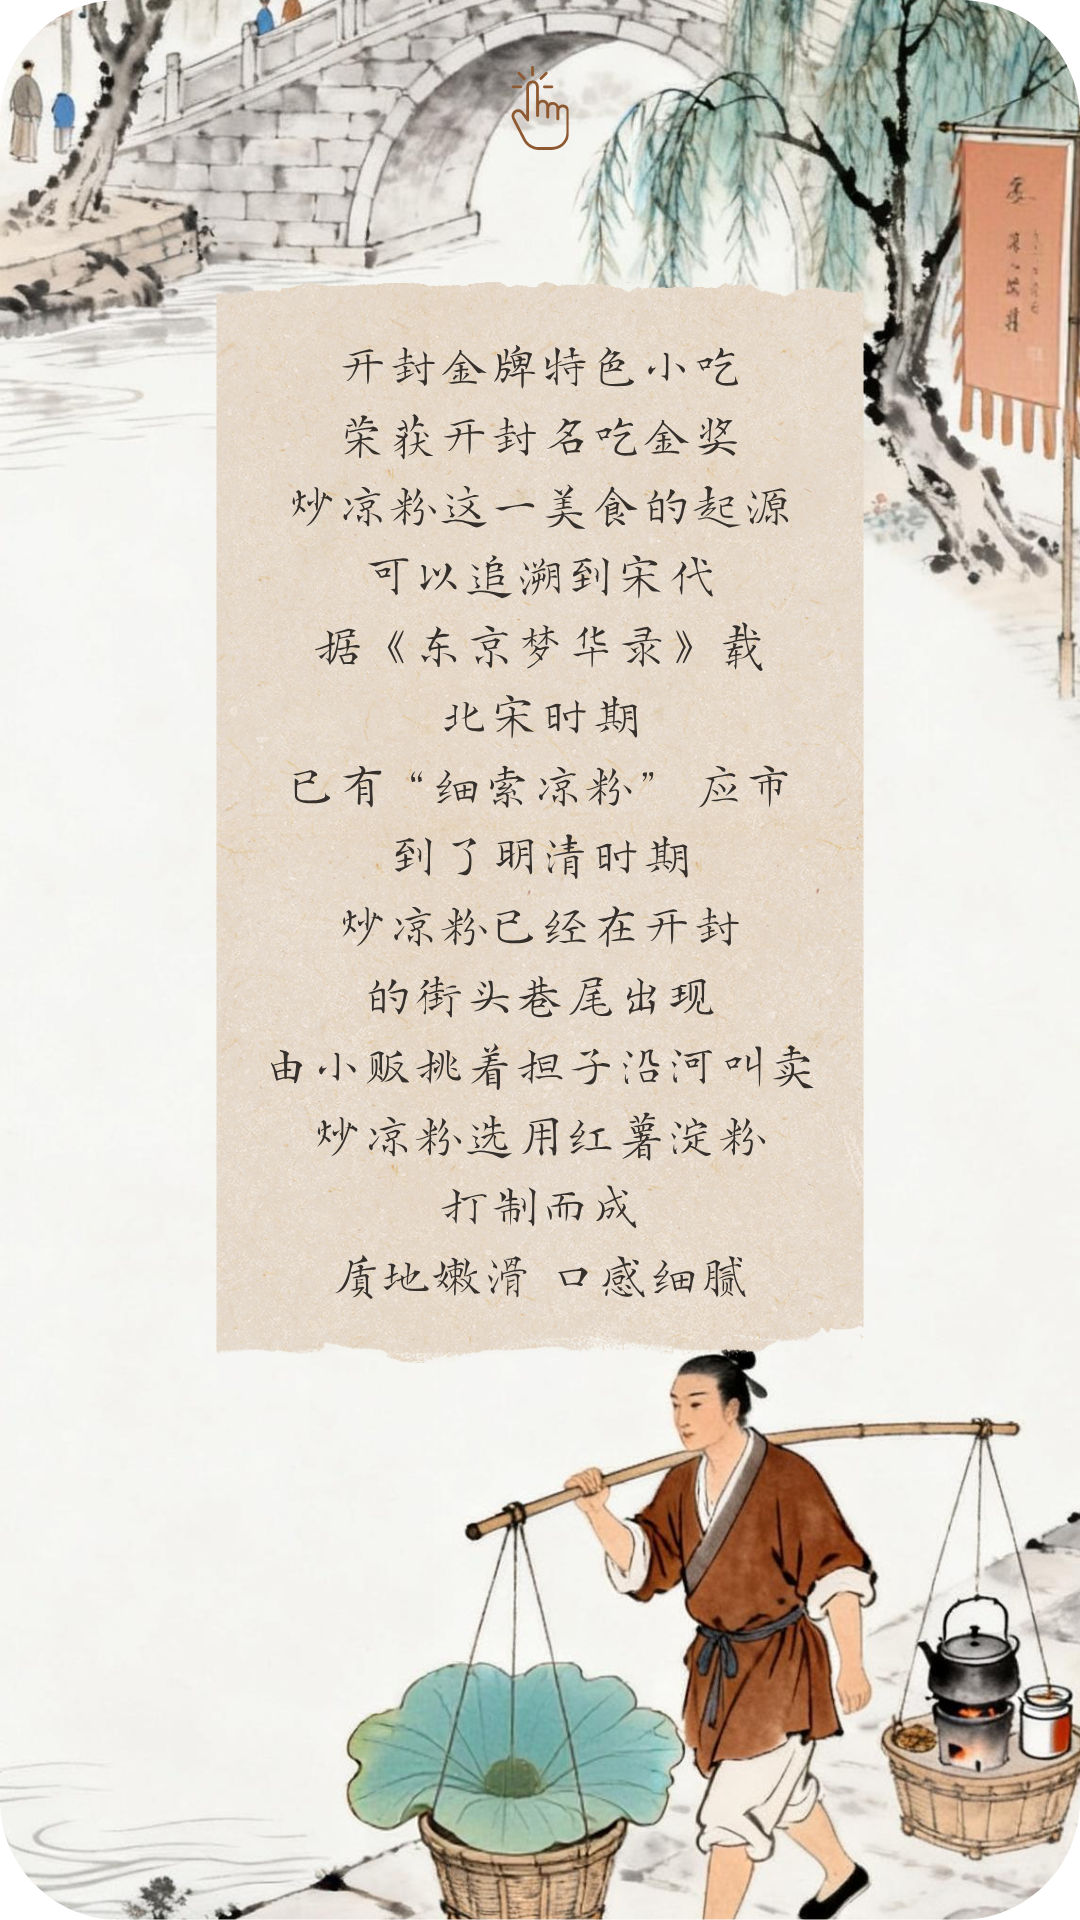 开封金牌特色小吃
荣获开封名吃金奖
炒凉粉这一美食的起源
可以追溯到宋代
据《东京梦华录》载
北宋时期
已有“细索凉粉” 应市
到了明清时期
炒凉粉已经在开封
的街头巷尾出现
由小贩挑着担子沿河叫卖
炒凉粉选用红薯淀粉
打制而成
质地嫩滑 口感细腻